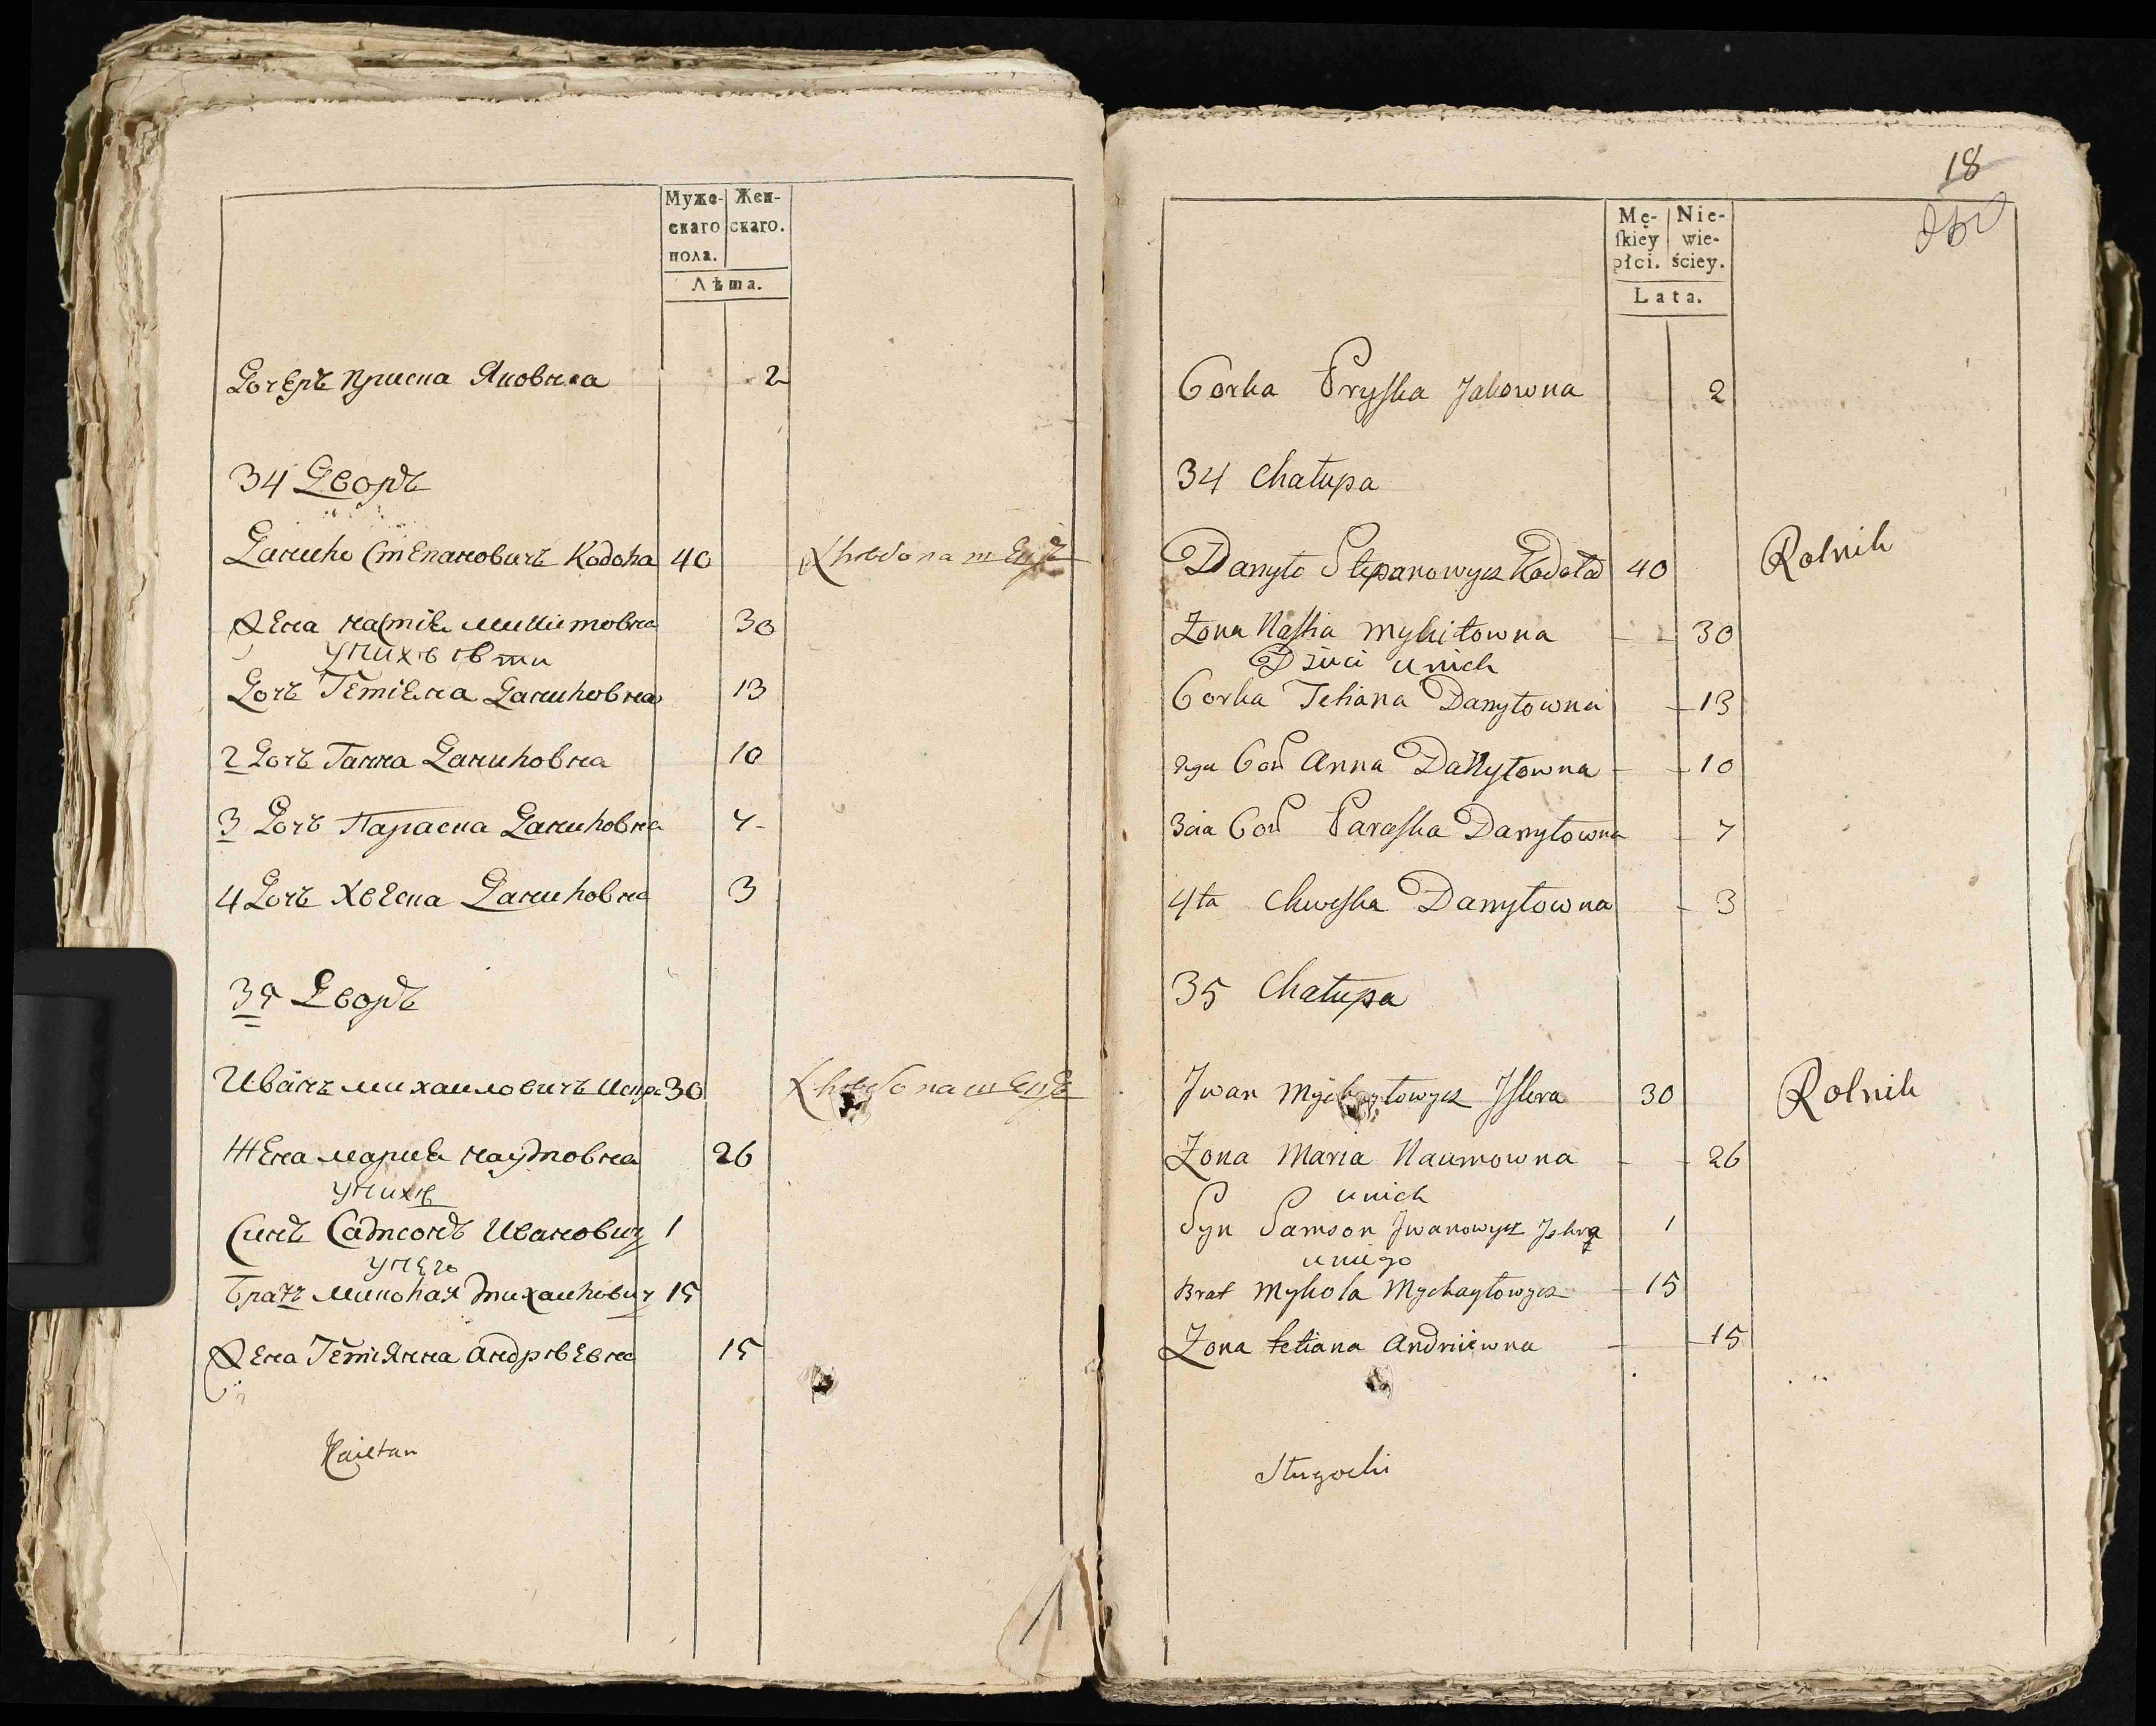 Муже-
скаго
пола.
Жен-
скаго.
Лѣта.
Дочеръ Приска Яковна 2
34 Дворъ
Данило Степановичъ Кодола 40 Хлѣбопашецъ
Жена Настія Микитовна 30
У них дѣти
Доч Тетіяна Даниловна 13
2 Доч Ганна Даниловна 10
3 Доч Параска Даниловна 7
4 Доч Хвеска Даниловна 3
35 Дворъ
Иванъ Михаиловичъ Искра 30 Хлѣбопашецъ
Жена Мария Наумовна 26
У нихъ
Синъ Самсонъ Иванович 1
У него
Братъ Миколай Михаилович 15
Жена Тетіянна Андрѣевна 15
Kaietan
18
Mę-
skiéy
płci.
Nie-
wie-
ściey.
Lata.
Corka Pryska Jakowna 2
34 Chałupa
Danyło Stepanowycz Kodoła 40 Rolnik
Zona Nastia Mykitowna 30
Dzieci u nich
Corka Tetiana Danyłowna 13
2ga Cor Anna Danyłowna 10
3cia Cor Paraska Danyłowna 7
4ta Chweska Danyłowna 3
35 Chałupa
Jwan Mychayłowycz Jskra 30 Rolnik
Zona Maria Naumowna 26
u nich
Syn Samson Jwanowycz Jskra 1
u niego
Brat Mykoła Mychayłowycz 15
Zona Tetiana Andriiewna 15